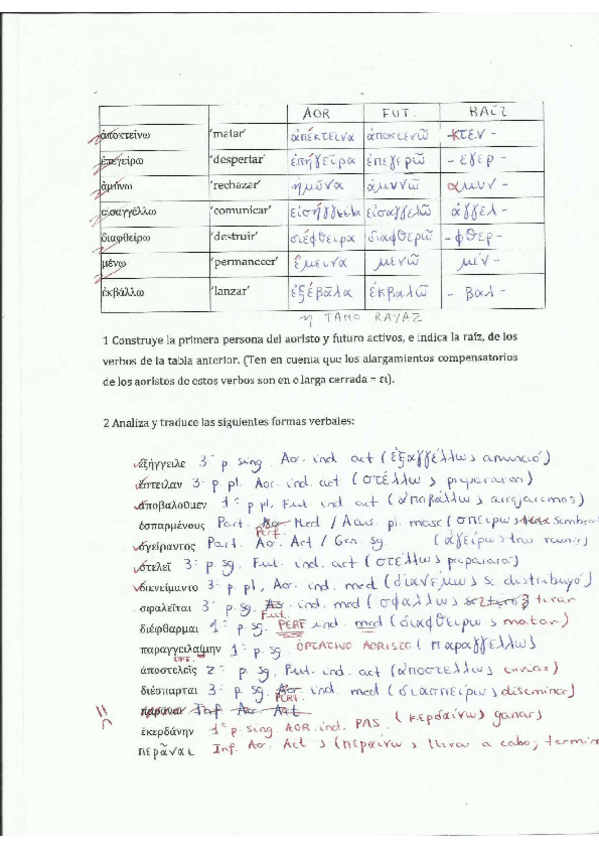 AOR FUT. RAÍZ
ἀποκτείνω 'matar' ἀπέκτεινα ἀποκτενῶ -κτεν-
ἐπεγείρω 'despertar' ἐπήγειρα ἐπεγερῶ - εγερ -
ἀμύνω 'rechazar' ἠμῦνα ἀμυνῶ αμυν -
εἰσαγγέλλω 'comunicar' εἰσαγγελῶ ἀγγελ -
διαφθείρω 'destruir' διέφθειρα διαφθερῶ -φθερ-
μένω 'permanecer' ἔμεινα μενῶ μέν -
ἐκβάλλω 'lanzar' ἐξέβαλα ἐκβαλῶ - βαλ -
η TAMO RAYAZ
1 Construye la primera persona del aoristo y futuro activos, e indica la raíz, de los
verbos de la tabla anterior. (Ten en cuenta que los alargamientos compensatorios
de los aoristos de estos verbos son en e larga cerrada = ει).
2 Analiza y traduce las siguientes formas verbales:
ἐξήγγειλε 3ª p sing. Aor. ind. act (ἐξαγγέλλω > anunció)
ἔστειλαν 3ª p pl. Aor. ind. act (στέλλω > prepararon)
ἀποβαλοῦμεν 1ª p pl, Fut. ind act (ἀποβάλλω > arrojaremos)
ἐσπαρμένους Part. Perf. Med / Acus. pl. masc (σπείρω >
ἀγείραντος Part. Ao. Act / Gen. sg. (ἀγείρω >
στελεῖ 3ª p. sg, Fut. ind. act (στέλλω > preparará)
διενείμαντο 3ª p. pl, Aor. ind. med (διανέμω > se distribuyó)
σφαλεῖται 3ª p. sg. Fut. ind. med (σφάλλω > tirar
διέφθαρμαι 1ª p. sg. PERF ind. med (διαφθείρω > matar)
παραγγειλαίμην 1ª p. sg. OPTATIVO AORISTO (παραγγέλλω >
ἀποστελεῖς 2ª p. sg, Fut. ind. act (ἀποστέλλω > enviar)
διέσπαρται 3ª p. sg PERF. ind. med (διασπείρω > diseminar)
Inf Aor Act
ἐκερδάνην 1ª p. sing. AOR. ind. PAS. (κερδαίνω > ganar)
περᾶναι Inf. Ao. Act > (περαίνω > llevar a cabo; termin